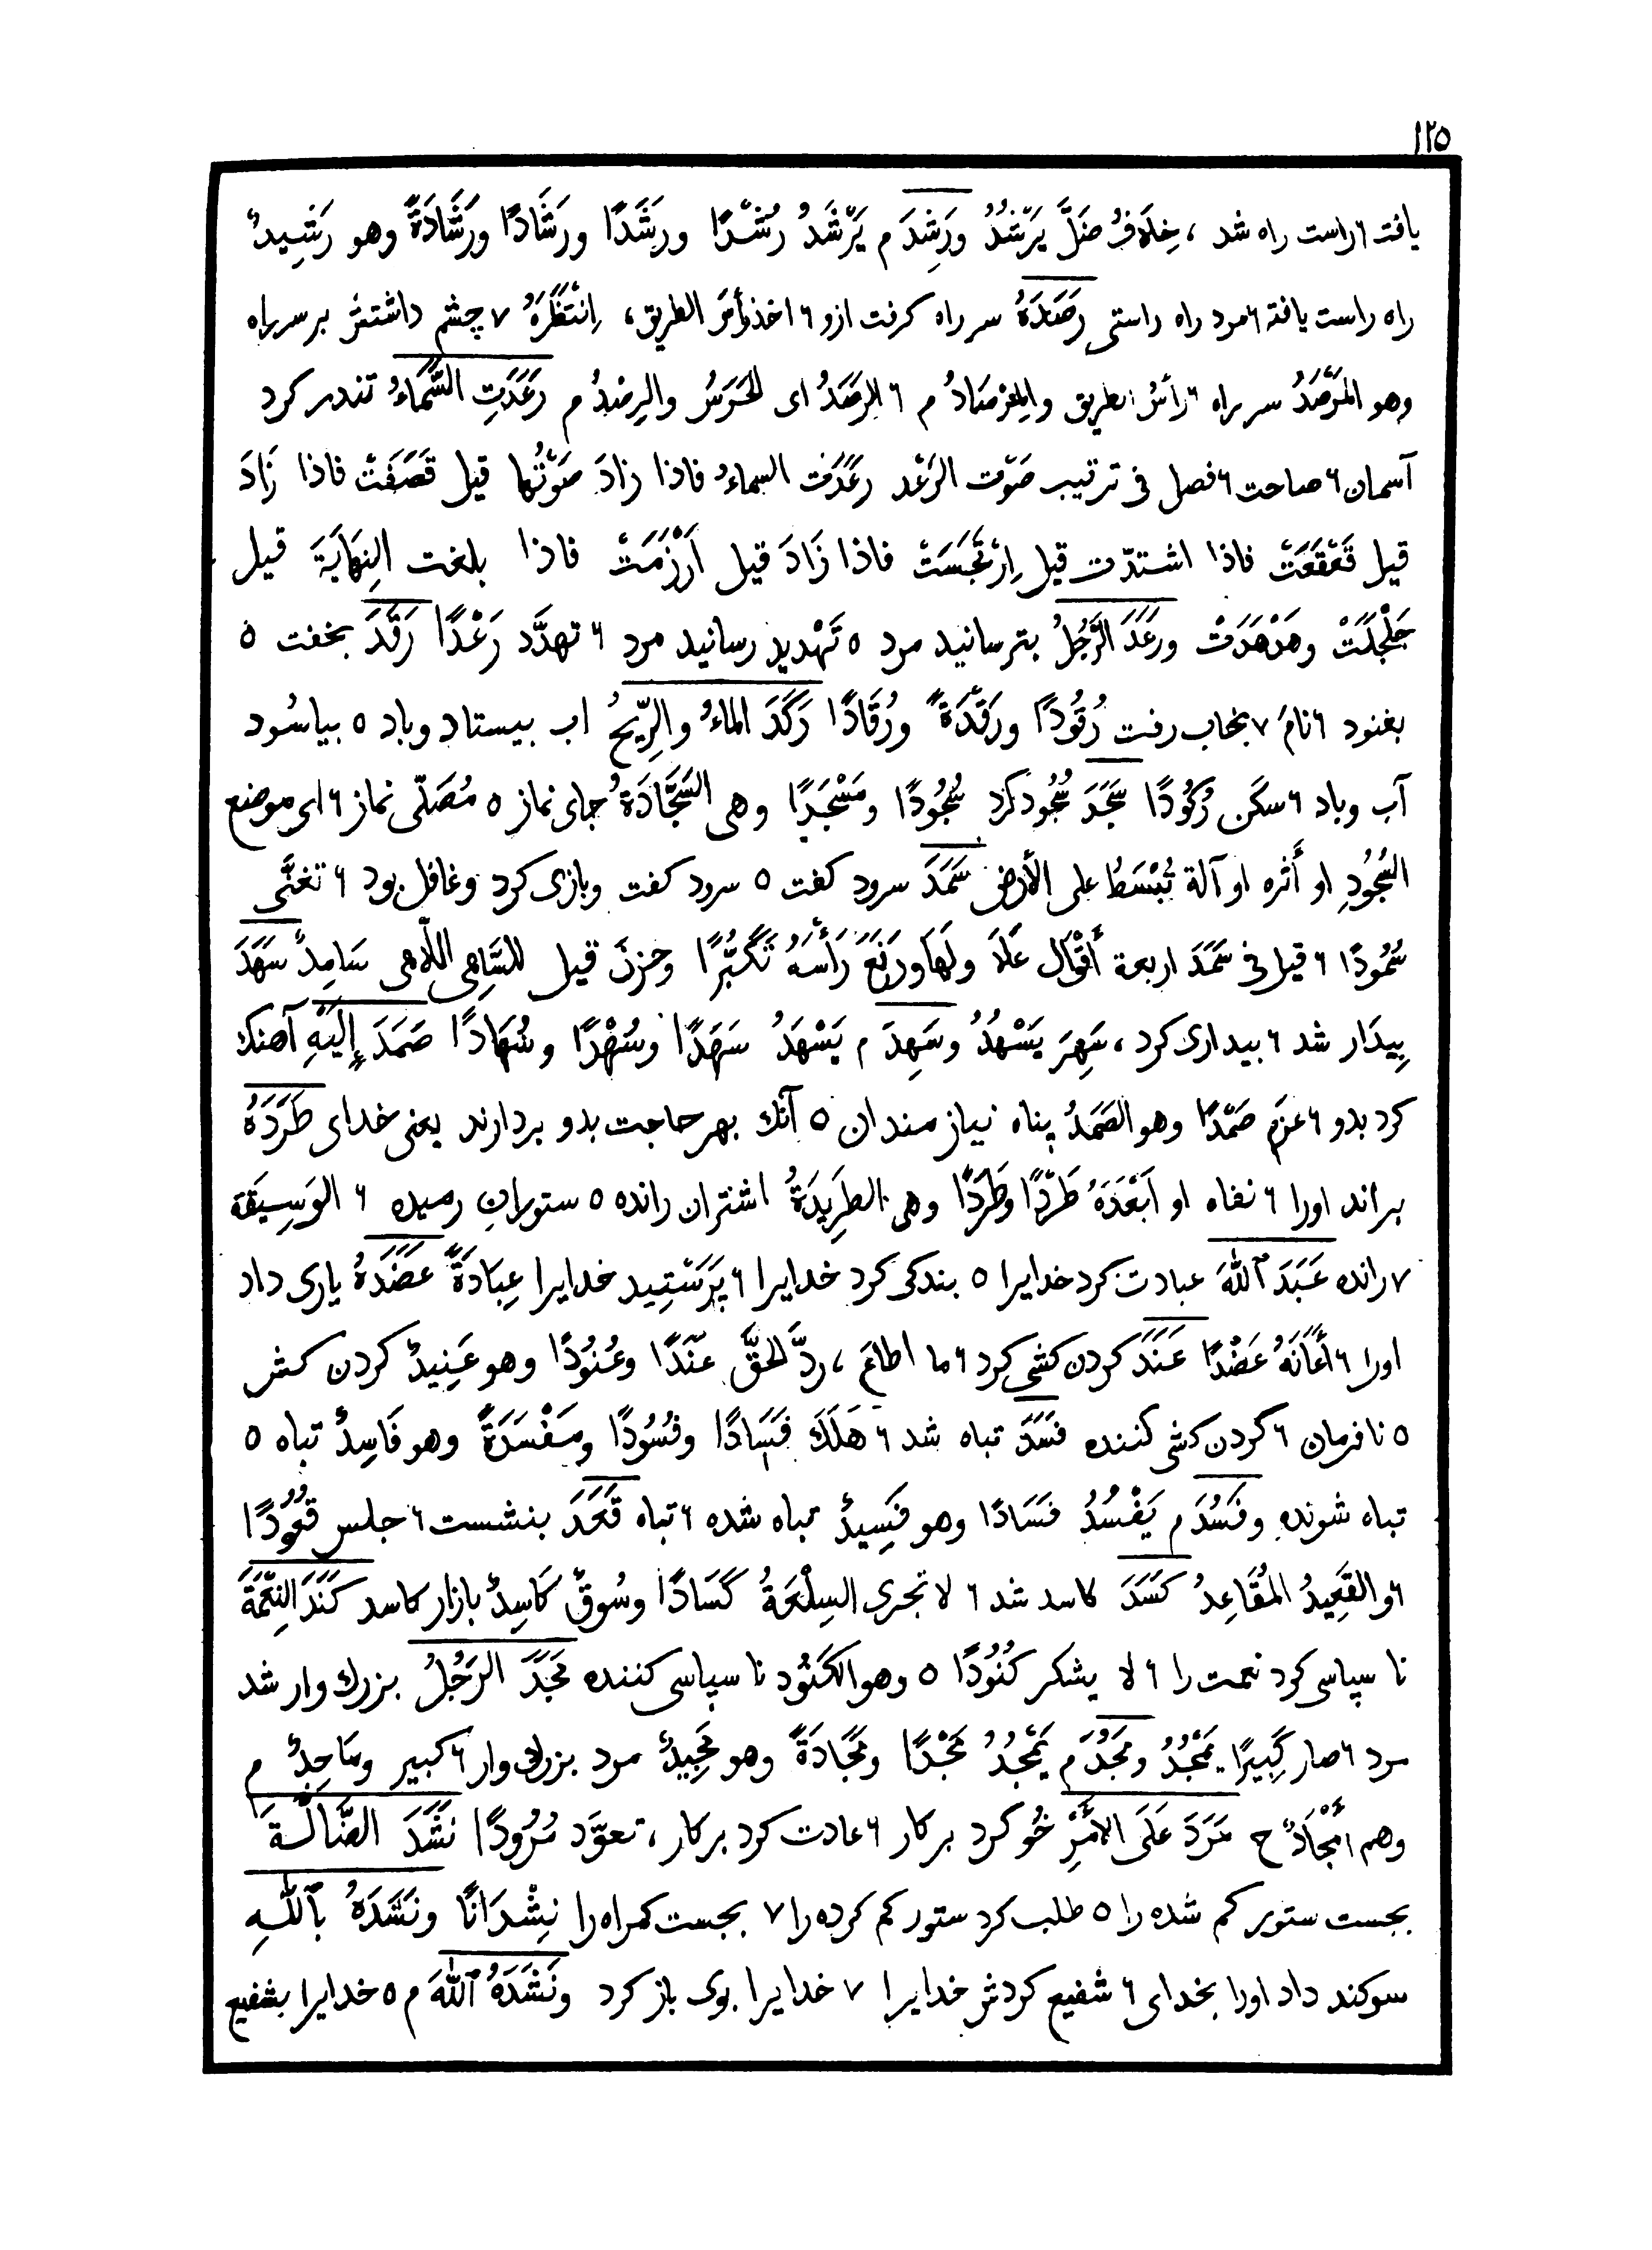 ١٢٥
يافت ٦ راست راه شد ، خِلَافُ ضَلَّ يَرْشُدُ ورَشِدَ م يَرْشَدُ رُشْدًا ورَشَدًا ورَشَادًا ورَشَادَةً وهو رَشِيدٌ
راه راست يافته ٦ مرد راه راستى رَصَدَهُ سر راه كرفت ازو ٦ اخذ رأسَ الطريق ، اِنْتَظَرَهُ ٧ چشم داشتش بر سر راه
وهو المَرْصَدُ سر راه ٦ رأسُ الطريق والمِرْصَادُ م ٦ الرَصَدُ اى الحَرَسُ والرِصْدُ م رَعَدَتِ السَّمَاءُ تندر كرد
آسمان ٦ صاحت ٦ فصل فى ترتيب صَوْت الرَعْد رَعَدَت السماءُ فاذا زادَ صَوْتُها قيل قَصَفَتْ فاذا زَادَ
قيل قَعْقَعَتْ فاذا اشتدّت قيل اِرْتَجَسَتْ فاذا زَادَ قيل اَرْزَمَتْ فاذا بلغت النِهَايَةَ قيل
جَلْجَلَتْ وهَدْهَدَتْ ورَعَدَ الرَّجُلُ بترسانيد مرد ٥ تَهْديد رسانيد مرد ٦ تهدَّد رَعْدًا رَقَدَ بخفت ٥
بغنود ٦ نامَ ٧ بخاب رفت رُقُودًا ورَقْدَةً ورُقَادًا رَكَدَ الماءُ والرِّيحُ اب بيستاد وباد ٥ بياسُود
آب وباد ٦ سكن رُكُودًا سَجَدَ سُجُود كرد سُجُودًا ومَسْجَدًا وهى السَجَّادَةُ جاى نماز ٥ مُصَلّى نماز ٦ اى موضع
السُجُودِ او أَثره او آلة تُبْسَطُ على الأرض سَمَدَ سرود كفت ٥ سرود كفت وبازى كرد وغافل بود ٦ تغنَّى
سُمُودًا ٦ قيل فى سَمَدَ اربعة أَقْوَال عَلَا ولَهَا ورَفَعَ رَأْسَهُ تَكَبُّرًا وحزنَ قيل للسَّاهِى اللَّاهى سَامِدٌ سَهَدَ
بِيدَار شد ٦ بيدارى كرد ، سَهِرَ يَسْهَدُ وسَهِدَ م يَسْهَدُ سَهَدًا وسُهْدًا وسُهَادًا صَمَدَ إِلَيْهِ آهنك
كرد بدو ٦ عزم صَمْدًا وهو الصَمَدُ پناه نياز مندان ٥ آنك بهر حاجت بدو بردارند يعنى خداى طَرَدَهُ
براند اورا ٦ نفاه او اَبْعَدَهُ طَرْدًا وطَرَدًا وهى الطَرِيدَةُ اشتران رانده ٥ ستوران رميده ٦ الوَسِيقَة
٧ رانده عَبَدَ ٱللّٰهَ عبادت كرد خدايرا ٥ بندكى كرد خدايرا ٦ پَرَسْتِيد خدايرا عِبَادَةً عَضَدَهُ يارى داد
اورا ٦ أَعَانَهُ عَضْدًا عَنَدَ كردن كشى كرد ٦ ما اطاعَ ، ردَّ الحَقَّ عَنْدًا وعُنُودًا وهو عَنِيدٌ كردن كش
٥ نا فرمان ٦ كردن كشى كننده فَسَدَ تباه شد ٦ هَلَكَ فَسَادًا وفُسُودًا ومَفْسَدَةً وهو فَاسِدٌ تباه ٥
تباه شونده وفَسُدَ م يَفْسُدُ فَسَادًا وهو فَسِيدٌ تباه شده ٦ تباه قَعَدَ بنشست ٦ جلس قُعُودًا
٦ والقَعِيدُ المُقَاعِدُ كَسَدَ كاسد شد ٦ لا تجرى السِلْعَةُ كَسَادًا وسُوقٌ كَاسِدٌ بازار كاسد كَنَدَ النِعْمَةَ
نا سپاسى كرد نعمت را ٦ لا يشكر كُنُودًا ٥ وهو الكَنُود نا سپاسى كننده مَجَدَ الرَجُلُ بزرك وار شد
مرد ٦ صار كَبِيرًا يَمْجُدُ ومَجُدَ م يَمْجُدُ مَجْدًا ومَجَادَةً وهو مَجِيدٌ مرد بزرك وار ٦ كبير ومَاجِدٌ م
وهم اَمْجَادٌ ح مَرَدَ عَلَى الأَمْرِ خُو كرد بر كار ٦ عادت كرد بر كار ، تعوَّد مُرُودًا نَشَدَ الضَّالَّةَ
بجست ستور كم شده را ٥ طلب كرد ستور كم كرده را ٧ بجست كمراه را نِشْدَانًا ونَشَدَهُ بٱللّٰهِ
سوكند داد اورا بخداى ٦ شفيع كردش خدايرا ٧ خدايرا بوى باز كرد ونَشَدَهُ ٱللّٰهَ م ٥ خدايرا بشفيع